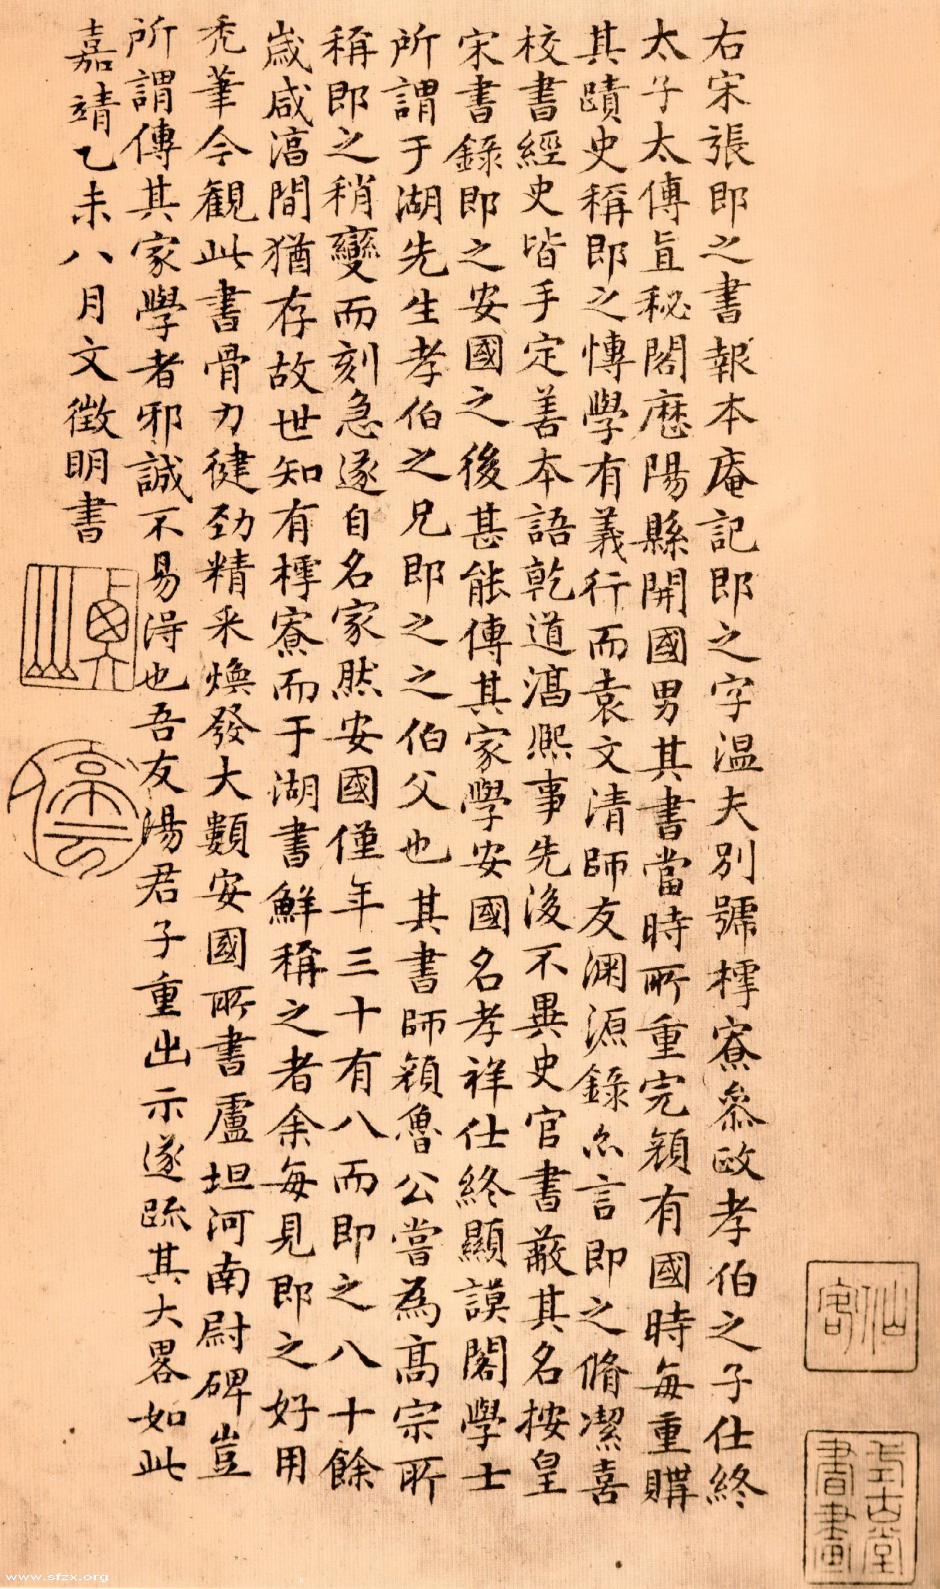 右宋張即之書報本庵記即之字温夫別號樗寮叅政孝伯之子仕終
太子太傅直秘閣歷陽縣開國男其書當時所重完顔有國時每重購
其蹟史稱即之博學有義行而袁文清師友淵源錄亦言即之脩潔喜
校書經史皆手定善本語乾道淳熙事先後不異史官書蔽其名按皇
宋書錄即之安國之後甚能傳其家學安國名孝祥仕終顯謨閣學士
所謂于湖先生孝伯之兄即之之伯父也其書師顔魯公嘗為髙宗所
稱即之稍變而刻急遂自名家然安國僅年三十有八而即之八十餘
歲咸淳間猶存故世知有樗寮而于湖書鮮稱之者余每見即之好用
禿筆今觀此書骨力健勁精采煥發大類安國所書盧坦河南尉碑豈
所謂傳其家學者邪誠不易得也吾友湯君子重出示遂䟽其大畧如此
嘉靖乙未八月文徵明書
仙客
式古堂書畫
www.sfzx.org